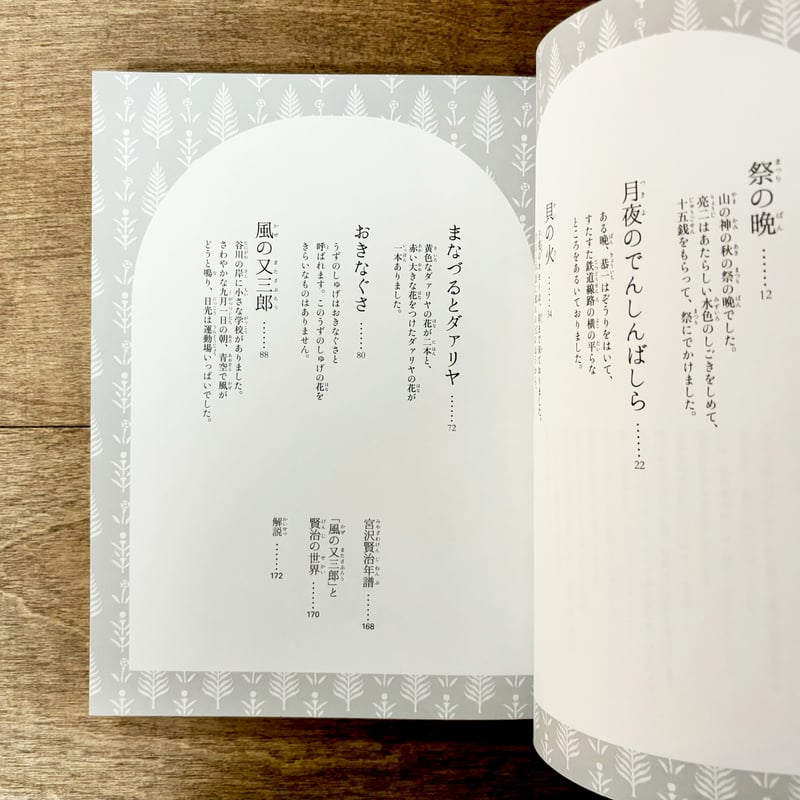 祭の晩……12
山の神の秋の祭の晩でした。
亮二はあたらしい水色のしごきをしめて、
十五銭をもらって、祭にでかけました。
月夜のでんしんばしら……22
ある晩、恭一はぞうりをはいて、
すたすた鉄道線路の横の平らな
ところをあるいておりました。
貝の火……34
まなづるとダァリヤ……72
黄色なダァリヤの花が二本と、
赤い大きな花をつけたダァリヤの花が
一本ありました。
おきなぐさ……80
うずのしゅげはおきなぐさと
呼ばれます。このうずのしゅげの花を
きらいなものはありません。
風の又三郎……88
谷川の岸に小さな学校がありました。
さわやかな九月一日の朝、青空で風が
どうと鳴り、日光は運動場いっぱいでした。
宮沢賢治年譜……168
「風の又三郎」と
賢治の世界……170
解説……172